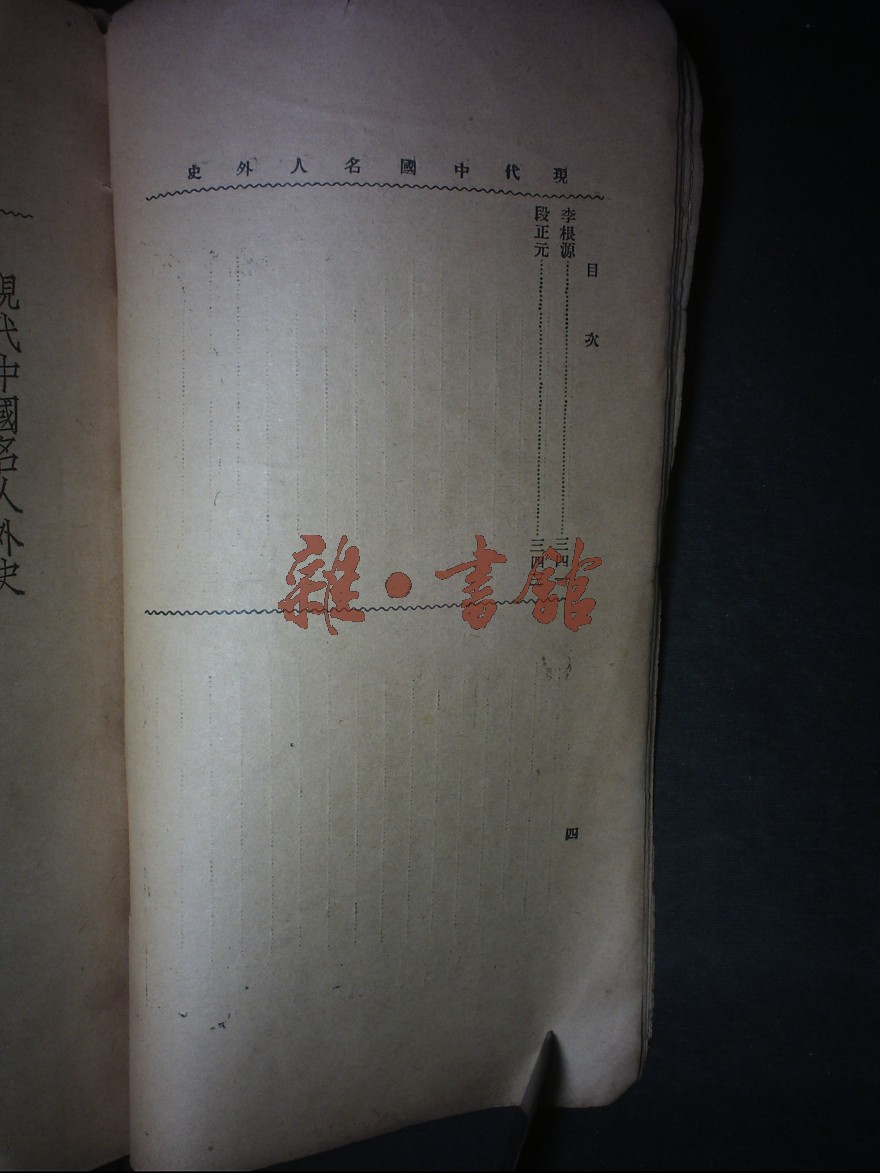 現代中國名人外史
目次
李根源……三四
段正元……三四
四
雜·書館
現代中國名人外史